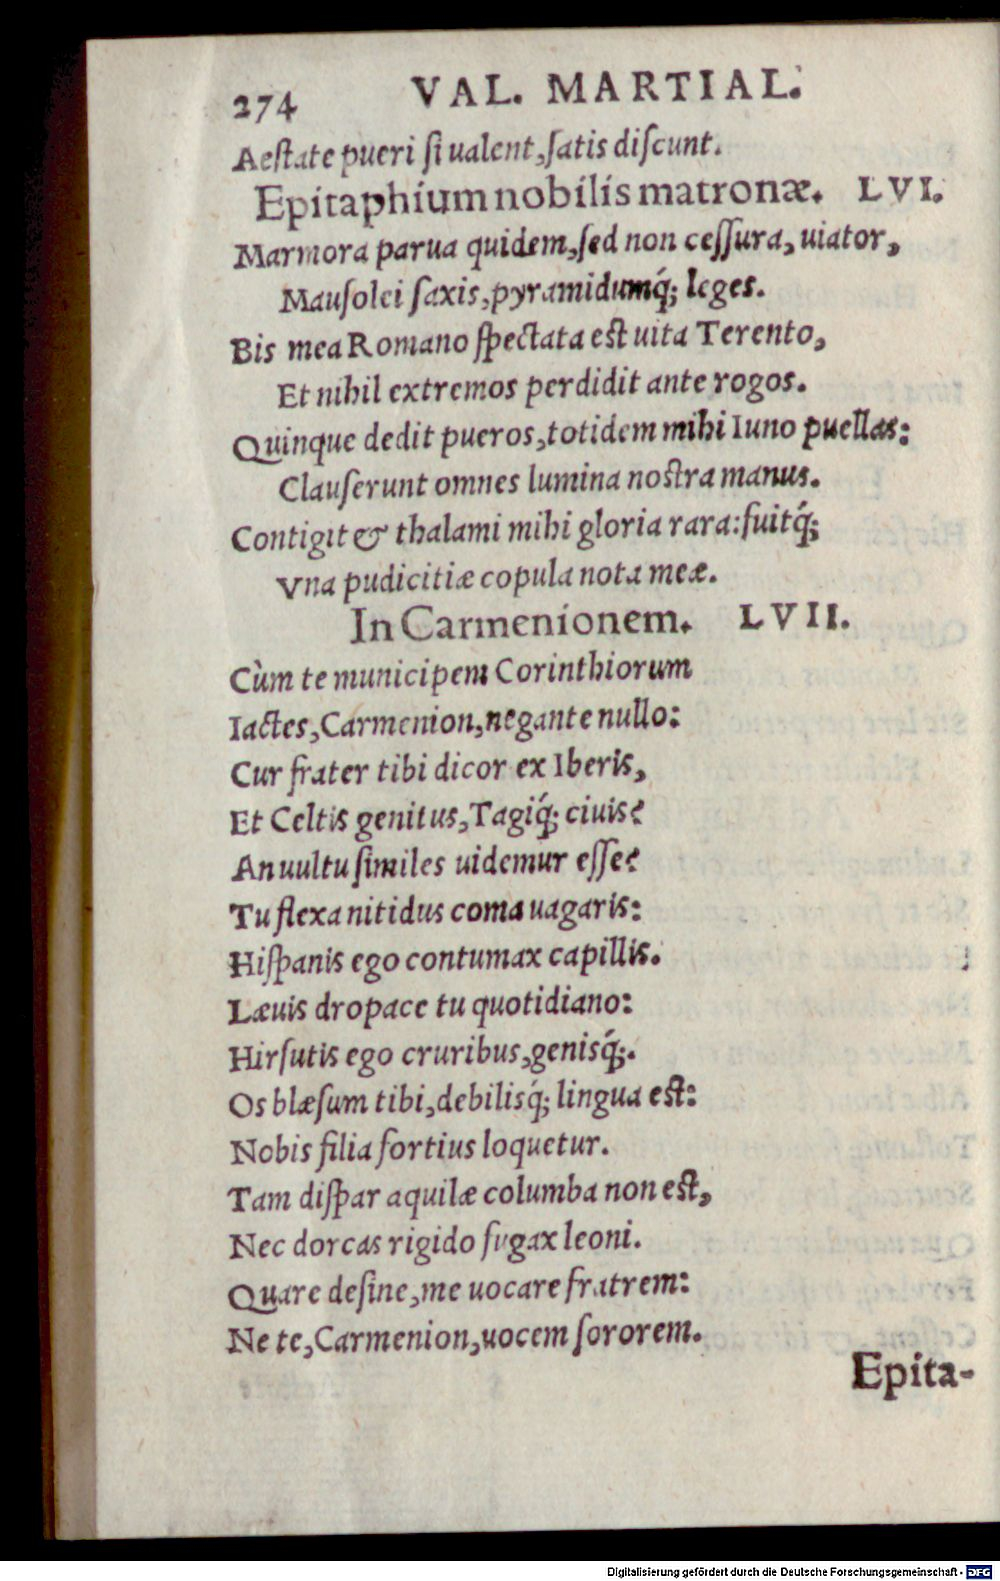 274 VAL. MARTIAL.
Aestate pueri ſi ualent, ſatis diſcunt.
Epitaphium nobilis matronæ. LVI.
Marmora parua quidem, ſed non ceſſura, uiator,
Mauſolei ſaxis, pyramidumq́; leges.
Bis mea Romano ſpectata eſt uita Terento,
Et nihil extremos perdidit ante rogos.
Quinque dedit pueros, totidem mihi Iuno puellas:
Clauſerunt omnes lumina noſtra manus.
Contigit & thalami mihi gloria rara: fuitq́;
Vna pudicitiæ copula nota meæ.
In Carmenionem. LVII.
Cùm te municipem Corinthiorum
Iactes, Carmenion, negante nullo:
Cur frater tibi dicor ex Iberis,
Et Celtis genitus, Tagiq́; ciuis?
An uultu ſimiles uidemur eſſe?
Tu flexa nitidus coma uagaris:
Hiſpanis ego contumax capillis.
Læuis dropace tu quotidiano:
Hirſutis ego cruribus, genisq́;.
Os blæſum tibi, debilisq́; lingua eſt:
Nobis filia fortius loquetur.
Tam diſpar aquilæ columba non eſt,
Nec dorcas rigido fugax leoni.
Quare deſine, me uocare fratrem:
Ne te, Carmenion, uocem ſororem.
Epita-
Digitalisierung gefördert durch die Deutsche Forschungsgemeinschaft - DFG